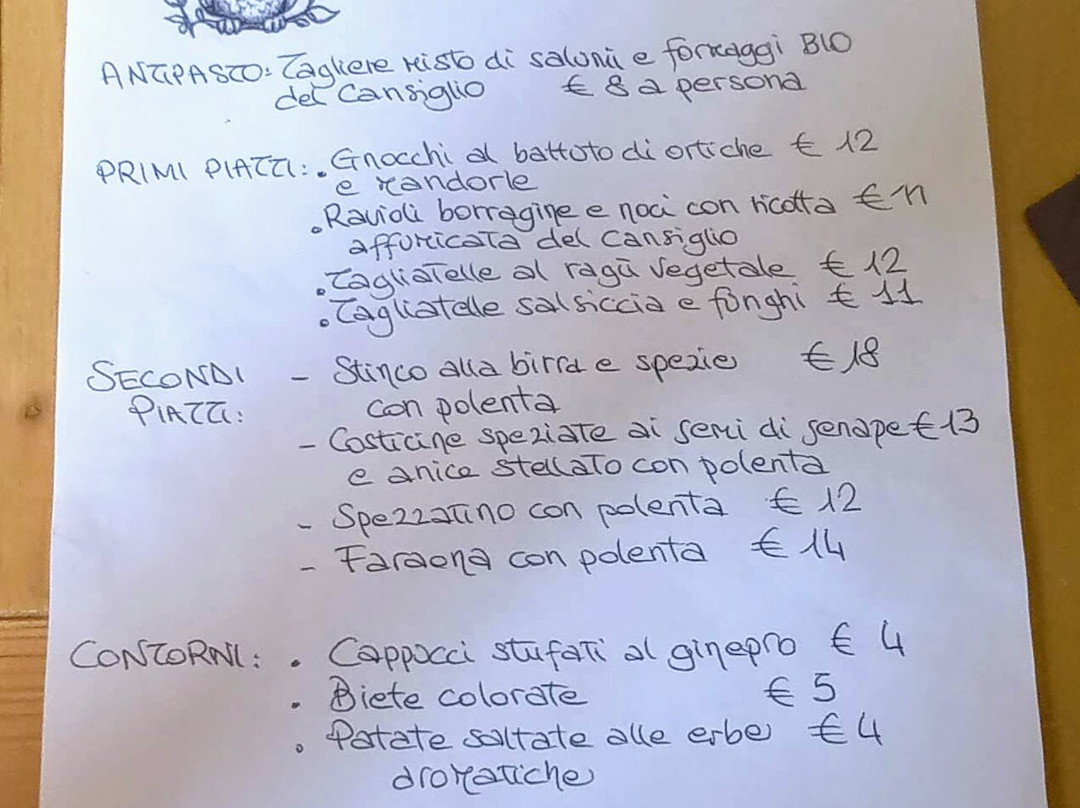 ANTIPASTO: Tagliere misto di salumi e formaggi BIO
del Cansiglio € 8 a persona
PRIMI PIATTI: . Gnocchi al battuto di ortiche € 12
e mandorle
. Ravioli borragine e noci con ricotta € 11
affumicata del Cansiglio
. Tagliatelle al ragù vegetale € 12
. Tagliatelle salsiccia e funghi € 11
SECONDI - Stinco alla birra e spezie € 18
PIATTI: con polenta
- Costicine speziate ai semi di senape € 13
e anice stellato con polenta
- Spezzatino con polenta € 12
- Faraona con polenta € 14
CONTORNI: . Cappucci stufati al ginepro € 4
. Biete colorate € 5
. Patate saltate alle erbe € 4
aromatiche